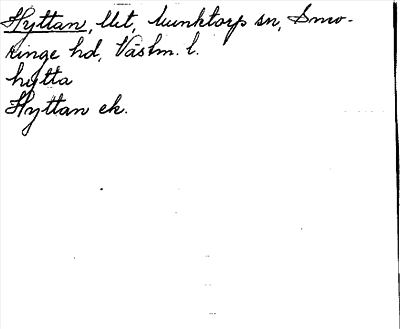 Hyttan, llt, Munktorp sn, Snev-
ringe hd, Västm. l.
hytta
Hyttan ek.